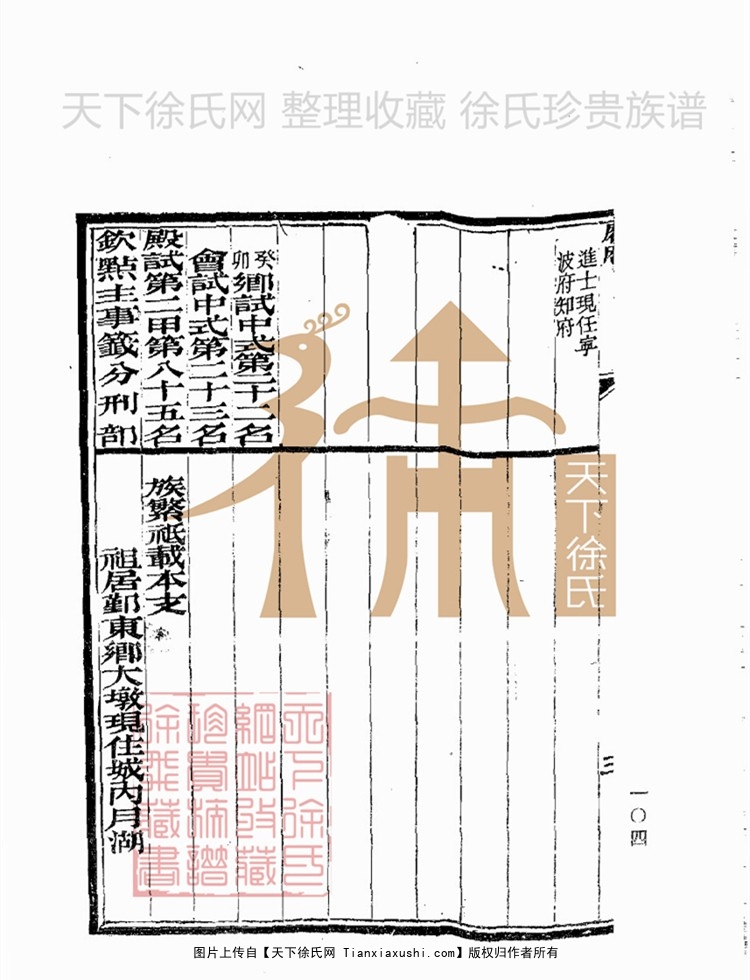 天下徐氏网 整理收藏 徐氏珍贵族谱
進士現任寧
波府知府
癸卯
鄉試中式第二十二名
會試中式第二十三名
殿試第二甲第八十五名
欽點主事籤分刑部
族繁祗載本支
祖居鄞東鄉大墩現住城內月湖
三
一〇四
天下徐氏
天下徐氏
網站收藏
珍貴族譜
徐飛藏書
图片上传自【天下徐氏网 Tianxiaxushi.com】版权归作者所有